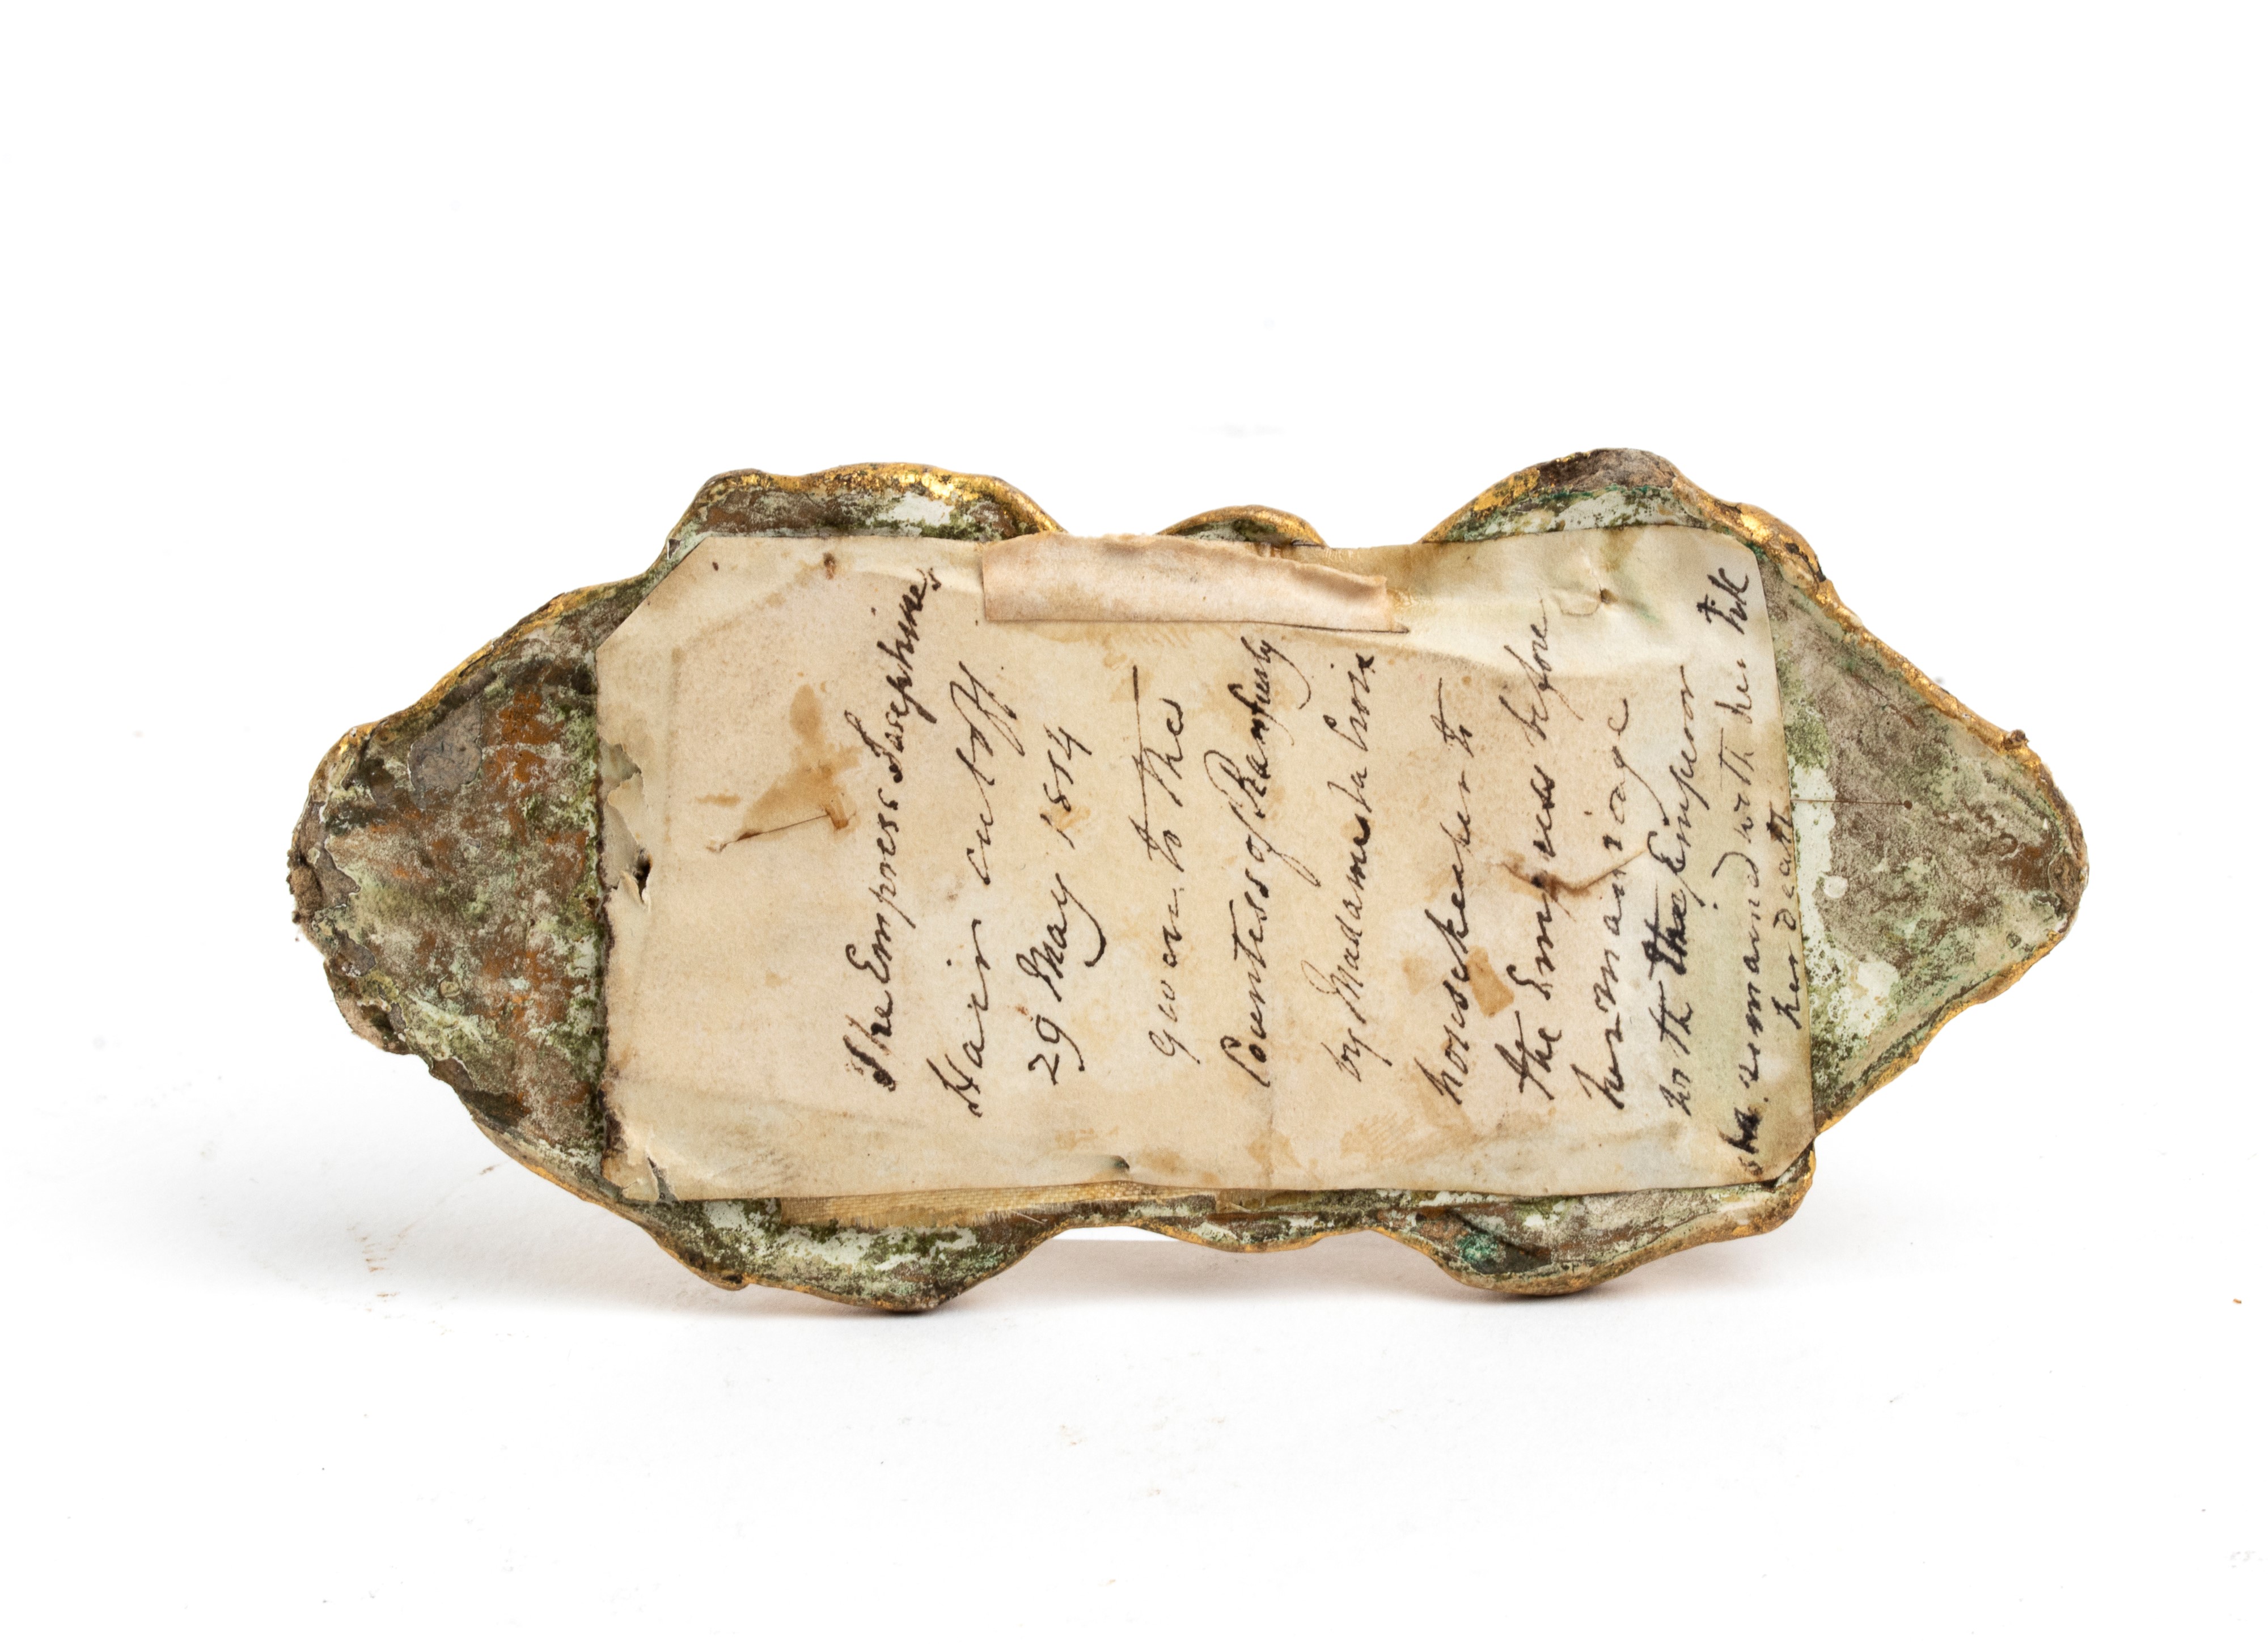 The Empress Josephines
Hair cut off
29 May 1814
given to the
Countess of Ranfurly
by Madame la Croix
housekeeper to
the Empress before
her marriage
with the Emperor
she remained with her till
her death